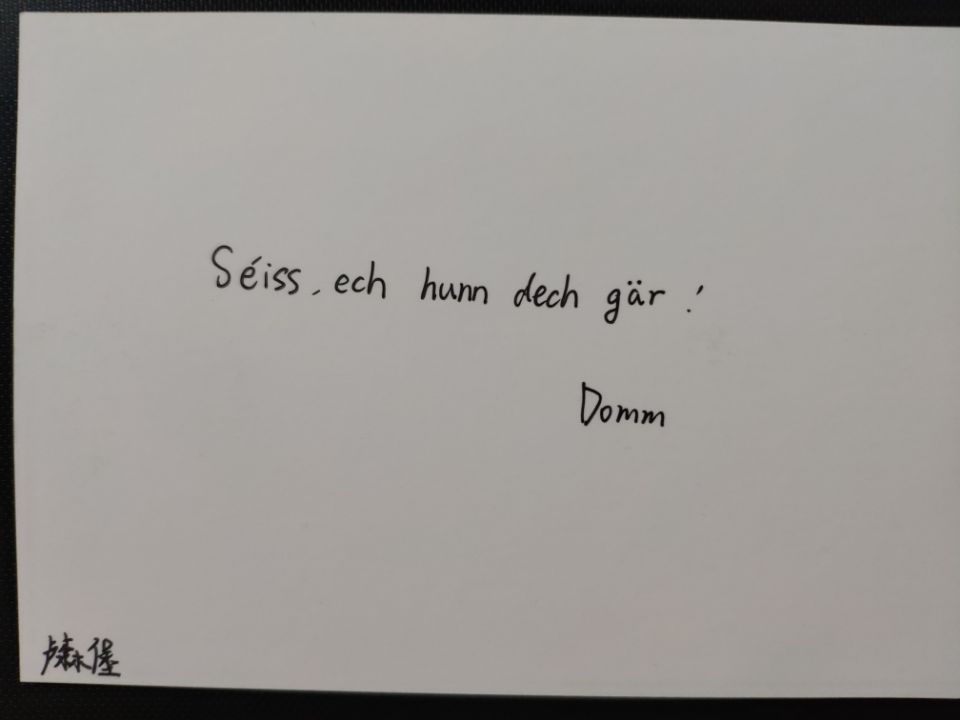 Séiss, ech hunn dech gär!
Domm
卢森堡